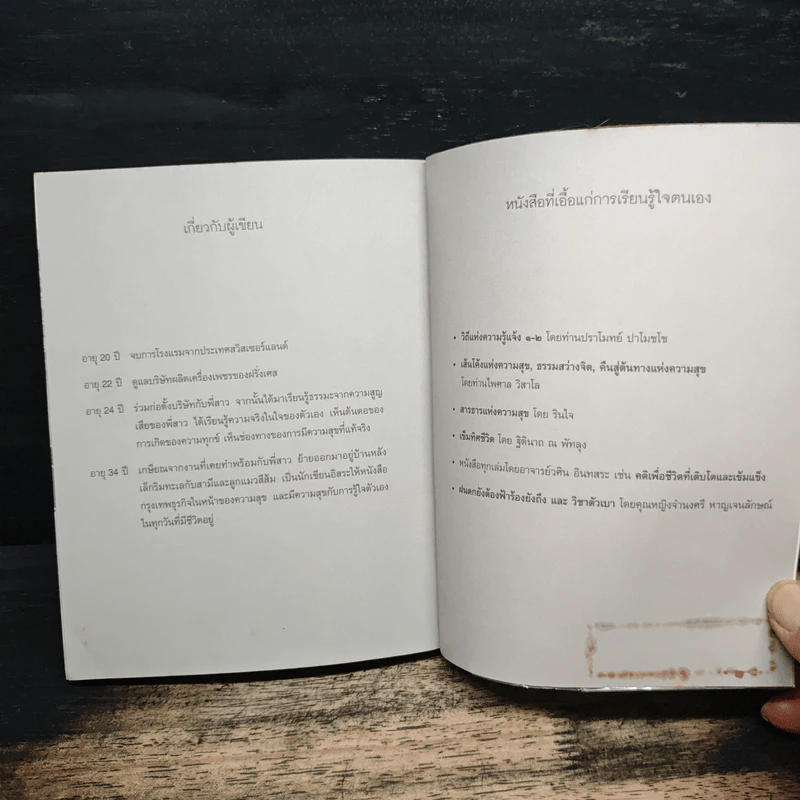 เกี่ยวกับผู้เขียน
อายุ 20 ปี จบการโรงแรมจากประเทศสวิสเซอร์แลนด์
อายุ 22 ปี ดูแลบริษัทผลิตเครื่องเพชรของฝรั่งเศส
อายุ 24 ปี ร่วมก่อตั้งบริษัทกับพี่สาว จากนั้นได้มาเรียนรู้ธรรมะจากความสูญ
เสียของพี่สาว ได้เรียนรู้ความจริงในใจของตัวเอง เห็นต้นตอของ
การเกิดของความทุกข์ เห็นช่องทางของการมีความสุขที่แท้จริง
อายุ 34 ปี เกษียณจากงานที่เคยทำพร้อมกับพี่สาว ย้ายออกมาอยู่บ้านหลัง
เล็กริมทะเลกับสามีและลูกแมวสีส้ม เป็นนักเขียนอิสระให้หนังสือ
กรุงเทพธุรกิจในหน้าของความสุข และมีความสุขกับการรู้ใจตัวเอง
ในทุกวันที่มีชีวิตอยู่
หนังสือที่เอื้อแก่การเรียนรู้ใจตนเอง
• วิถีแห่งความรู้แจ้ง ๑-๒ โดยท่านปราโมทย์ ปาโมชโช
• เส้นโค้งแห่งความสุข, ธรรมสว่างจิต, คืนสู่ต้นทางแห่งความสุข
โดยท่านไพศาล วิสาโล
• สาธารแห่งความสุข โดย รินใจ
• เข็มทิศชีวิต โดย ฐิตินาถ ณ พัทลุง
• หนังสือทุกเล่มโดยอาจารย์วศิน อินทสระ เช่น คติเพื่อชีวิตที่เติบโตและเข้มแข็ง
• ฝนตกยังต้องฟ้าร้องยังถึง และ วิชาตัวเบา โดยคุณหญิงจำนงศรี หาญเจนลักษณ์